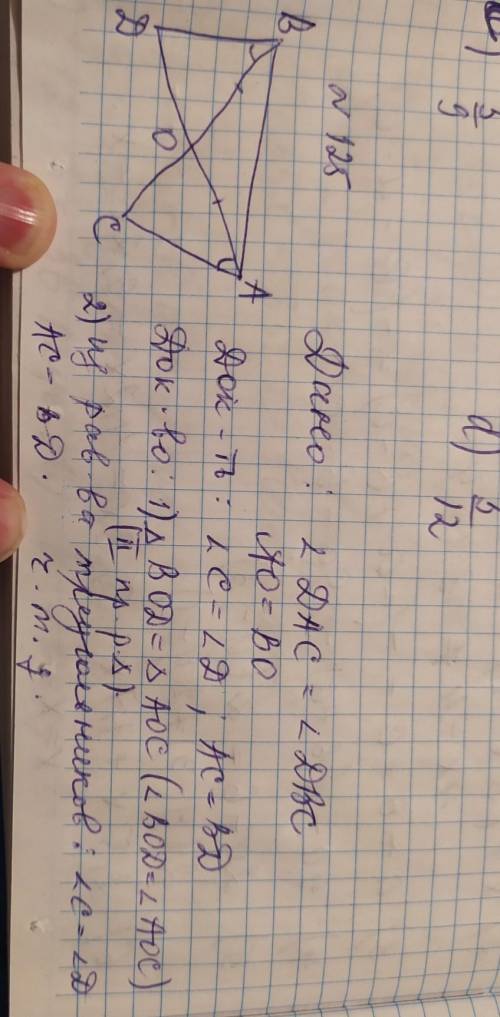 с) 5/9
d) 5/12
N 125
D
B
O
C
A
Дано: ∠DAC = ∠DBC
AO = BO
Док-ть: ∠C = ∠D; AC = BD
Док-во: 1) △BOD = △AOC (∠BOD = ∠AOC)
(II пр. р △)
2) из рав-ва треугольников: ∠C = ∠D
AC = BD.
ч.т.д.